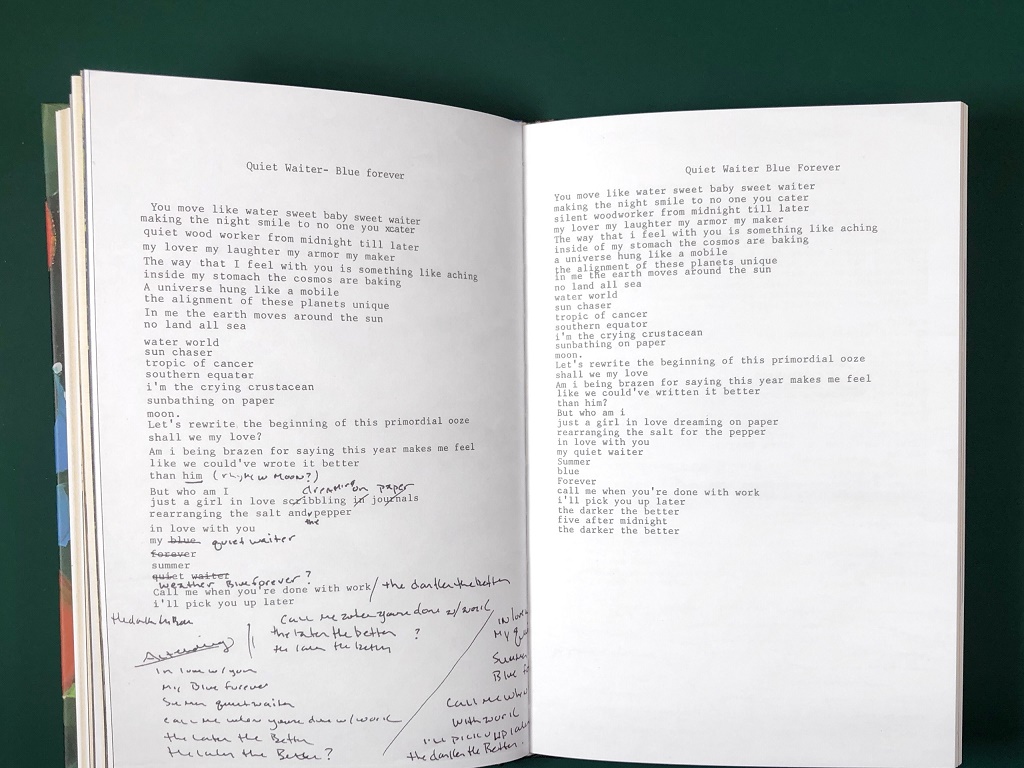 Quiet Waiter- Blue forever
You move like water sweet baby sweet waiter
making the night smile to no one you xcater
quiet wood worker from midnight till later
my lover my laughter my armor my maker
The way that I feel with you is something like aching
inside my stomach the cosmos are baking
A universe hung like a mobile
the alignment of these planets unique
In me the earth moves around the sun
no land all sea
water world
sun chaser
tropic of cancer
southern equater
i'm the crying crustacean
sunbathing on paper
moon.
Let's rewrite the beginning of this primordial ooze
shall we my love?
Am i being brazen for saying this year makes me feel
like we could've wrote it better
than him (rhyme w moon?)
But who am I
dreaming on paper
just a girl in love scribbling in journals
rearranging the salt and pepper
the
in love with you
my blue quiet waiter
forever
summer
quiet waiter
Blue forever?
Call me when you're done with work / the darker the better
i'll pick you up later
Call me when you're done w/ work
the later the better ?
the later the better
In love w/ you
My Blue forever
Summer quiet waiter
call me when you're done w/ work
the later the Better
the later the Better?
in love
My
Summer
Blue
Call me when
with work
I'll pick u up later
the darker the Better.
Quiet Waiter Blue Forever
You move like water sweet baby sweet waiter
making the night smile to no one you cater
silent woodworker from midnight till later
my lover my laughter my armor my maker
The way that i feel with you is something like aching
inside of my stomach the cosmos are baking
a universe hung like a mobile
the alignment of these planets unique
in me the earth moves around the sun
no land all sea
water world
sun chaser
tropic of cancer
southern equator
i'm the crying crustacean
sunbathing on paper
moon.
Let's rewrite the beginning of this primordial ooze
shall we my love
Am i being brazen for saying this year makes me feel
like we could've written it better
than him?
But who am i
just a girl in love dreaming on paper
rearranging the salt for the pepper
in love with you
my quiet waiter
Summer
blue
Forever
call me when you're done with work
i'll pick you up later
the darker the better
five after midnight
the darker the better